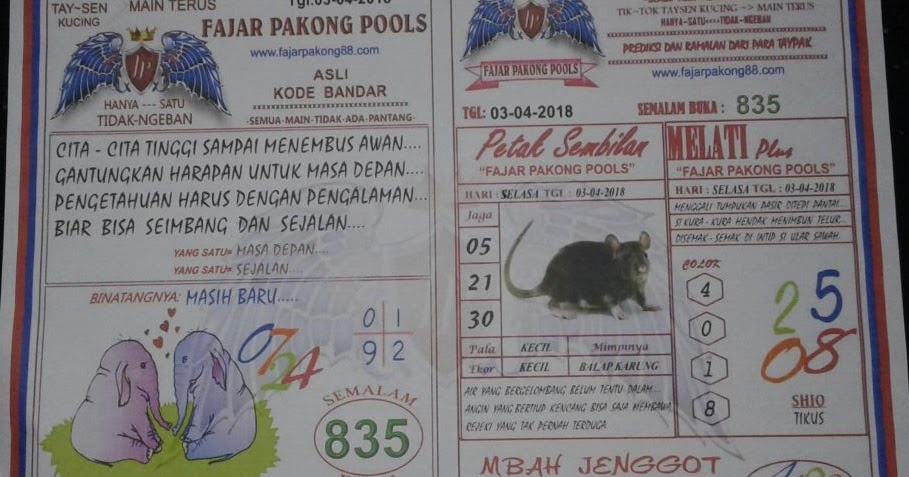 TAY~SEN
KUCING
MAIN TERUS
Tgl:03-04-2018
FAJAR PAKONG POOLS
www.fajarpakong88.com
DP
HANYA --- SATU
TIDAK-NGEBAN
ASLI
KODE BANDAR
-SEMUA-MAIN-TIDAK-ADA-PANTANG-
CITA - CITA TINGGI SAMPAI MENEMBUS AWAN....
GANTUNGKAN HARAPAN UNTUK MASA DEPAN....
PENGETAHUAN HARUS DENGAN PENGALAMAN...
BIAR BISA SEIMBANG DAN SEJALAN....
YANG SATU= MASA DEPAN....
YANG SATU= SEJALAN....
BINATANGNYA: MASIH BARU.....
07
24
0 1
9 2
SEMALAM
835
TIK~TOK TAYSEN KUCING ~> MAIN TERUS
HANYA~SATU<==>TIDAK~NGEBAN
PREDIKSI DAN RAMALAN DARI PARA TAYPAK
FAJAR PAKONG POOLS
www.fajarpakong88.com
TGL: 03-04-2018
SEMALAM BUKA : 835
Petak Sembilan
"FAJAR PAKONG POOLS"
HARI : SELASA TGL : 03-04-2018
Jaga
05
21
30
Pala
KECIL
Mimpinya
Ekor
KECIL
BALAP KARUNG
AIR YANG BERGELOMBANG BELUM TENTU DALAM...
ANGIN YANG BERTIUP KENCANG BISA SAJA MEMBAWA
REJEKI YANG TAK PERNAH TERDUGA.
MELATI Plus
"FAJAR PAKONG POOLS"
HARI : SELASA TGL : 03-04-2018
MENGGALI TUMPUKAN PASIR DITEPI PANTAI...
SI KURA - KURA HENDAK MENIMBUN TELUR...
DISEMAK - SEMAK DI INTIP SI ULAR SAWAH.
COLOK
4
0
1
8
25
08
SHIO
TIKUS
MBAH JENGGOT